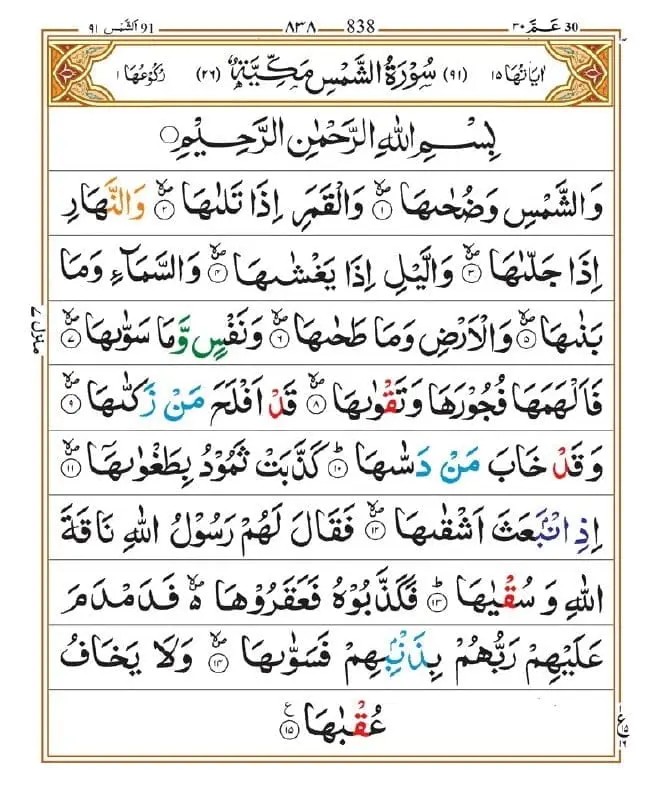 30 عـمّ ٣٠
838 ٨٣٨
91 الشمس ٩١
اٰیَاتُهَا ١٥ (٩١) سُوْرَةُ الشَّمْسِ مَكِّيَّةٌ (٢٦) رُكُوْعُهَا ١
بِسْمِ اللّٰهِ الرَّحْمٰنِ الرَّحِيْمِ
وَالشَّمْسِ وَضُحٰىهَا ۪ۙ ١ وَالْقَمَرِ اِذَا تَلٰىهَا ۪ۙ ٢ وَالنَّهَارِ
اِذَا جَلّٰىهَا ۪ۙ ٣ وَالَّيْلِ اِذَا يَغْشٰىهَا ۪ۙ ٤ وَالسَّمَآءِ وَمَا
بَنٰىهَا ۪ۙ ٥ وَالْاَرْضِ وَمَا طَحٰىهَا ۪ۙ ٦ وَنَفْسٍ وَّمَا سَوّٰىهَا ۪ۙ ٧
فَاَلْهَمَهَا فُجُوْرَهَا وَتَقْوٰىهَا ۪ۙ ٨ قَدْ اَفْلَحَ مَنْ زَكّٰىهَا ۪ۙ ٩
وَقَدْ خَابَ مَنْ دَسّٰىهَا ؕ ١٠ كَذَّبَتْ ثَمُوْدُ بِطَغْوٰىهَاۤ ۪ۙ ١١
اِذِ انْۢبَعَثَ اَشْقٰىهَا ۪ۙ ١٢ فَقَالَ لَهُمْ رَسُوْلُ اللّٰهِ نَاقَةَ
اللّٰهِ وَسُقْيٰهَا ؕ ١٣ فَكَذَّبُوْهُ فَعَقَرُوْهَا ۪ۙ۬ فَدَمْدَمَ
عَلَيْهِمْ رَبُّهُمْ بِذَنْۢبِهِمْ فَسَوّٰىهَا ۪ۙ ١٤ وَلَا يَخَافُ
عُقْبٰهَا ١٥ ع
منزل ٧
ع ١٥ ١٦